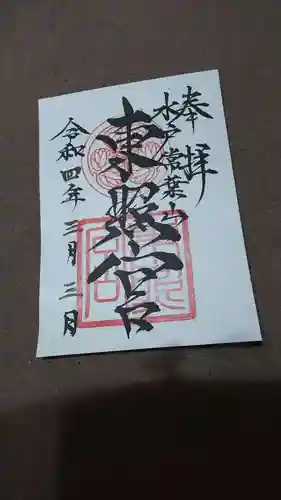 奉拝
水戸常葉山
東照宮
令和四年三月三日